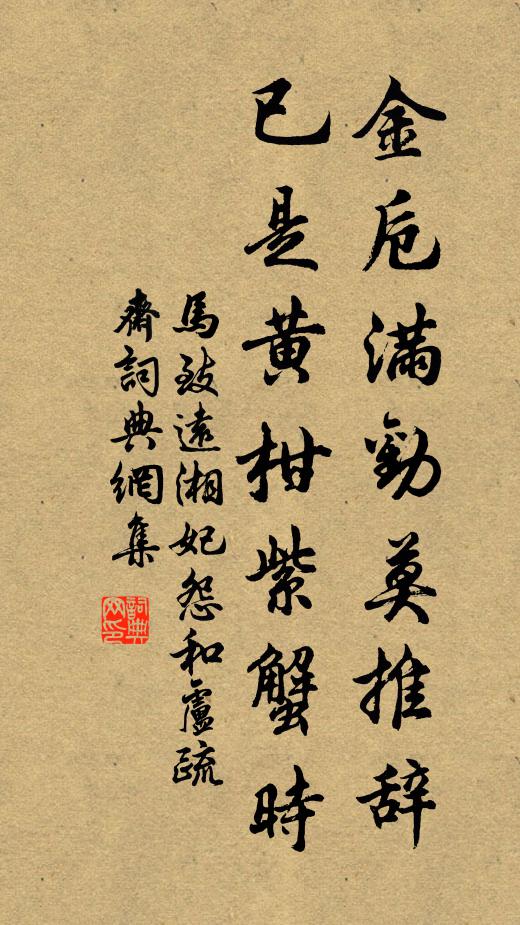 金卮滿勸莫推辞
已是黄柑紫蟹時
馬致遠湘妃怨和盧疏
齋詞典網集
詞典网印